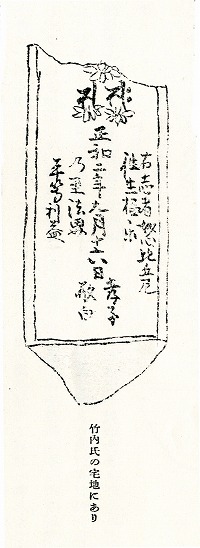 右志者妙心比丘尼
往生極楽
正和二年九月十八日 孝子
敬白
乃至法界
平等利益
竹内氏の宅地にあり